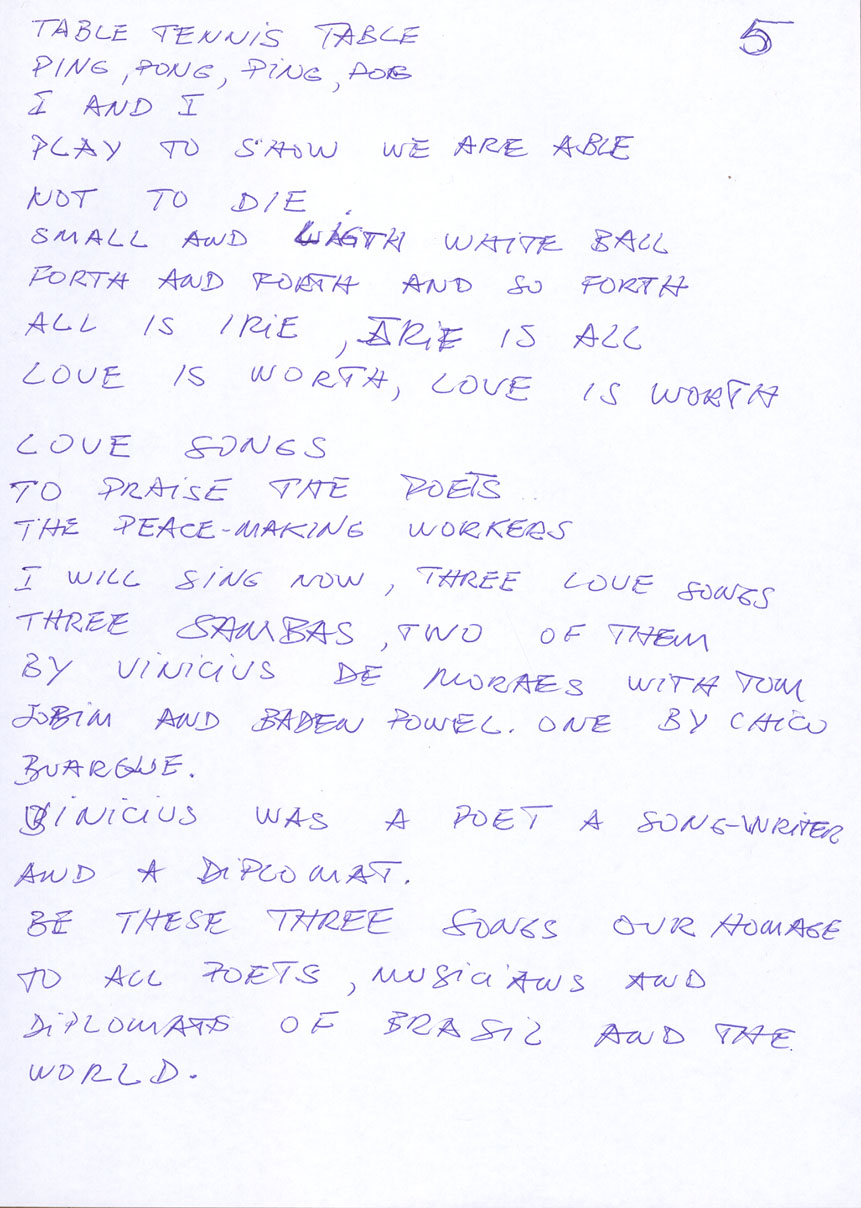 5
TABLE TENNIS TABLE
PING, PONG, PING, POG
I AND I
PLAY TO SHOW WE ARE ABLE
NOT TO DIE.
SMALL AND WHITE BALL
FORTH AND FORTH AND SO FORTH
ALL IS IRIE, IRIE IS ALL
LOVE IS WORTH, LOVE IS WORTH
LOVE SONGS
TO PRAISE THE POETS
THE PEACE-MAKING WORKERS
I WILL SING NOW, THREE LOVE SONGS
THREE SAMBAS, TWO OF THEM
BY VINICIUS DE MORAES WITH TOM
JOBIM AND BADEN POWEL. ONE BY CHICO
BUARQUE.
VINICIUS WAS A POET A SONG-WRITER
AND A DIPLOMAT.
BE THESE THREE SONGS OUR HOMAGE
TO ALL POETS, MUSICIANS AND
DIPLOMATS OF BRASIL AND THE
WORLD.